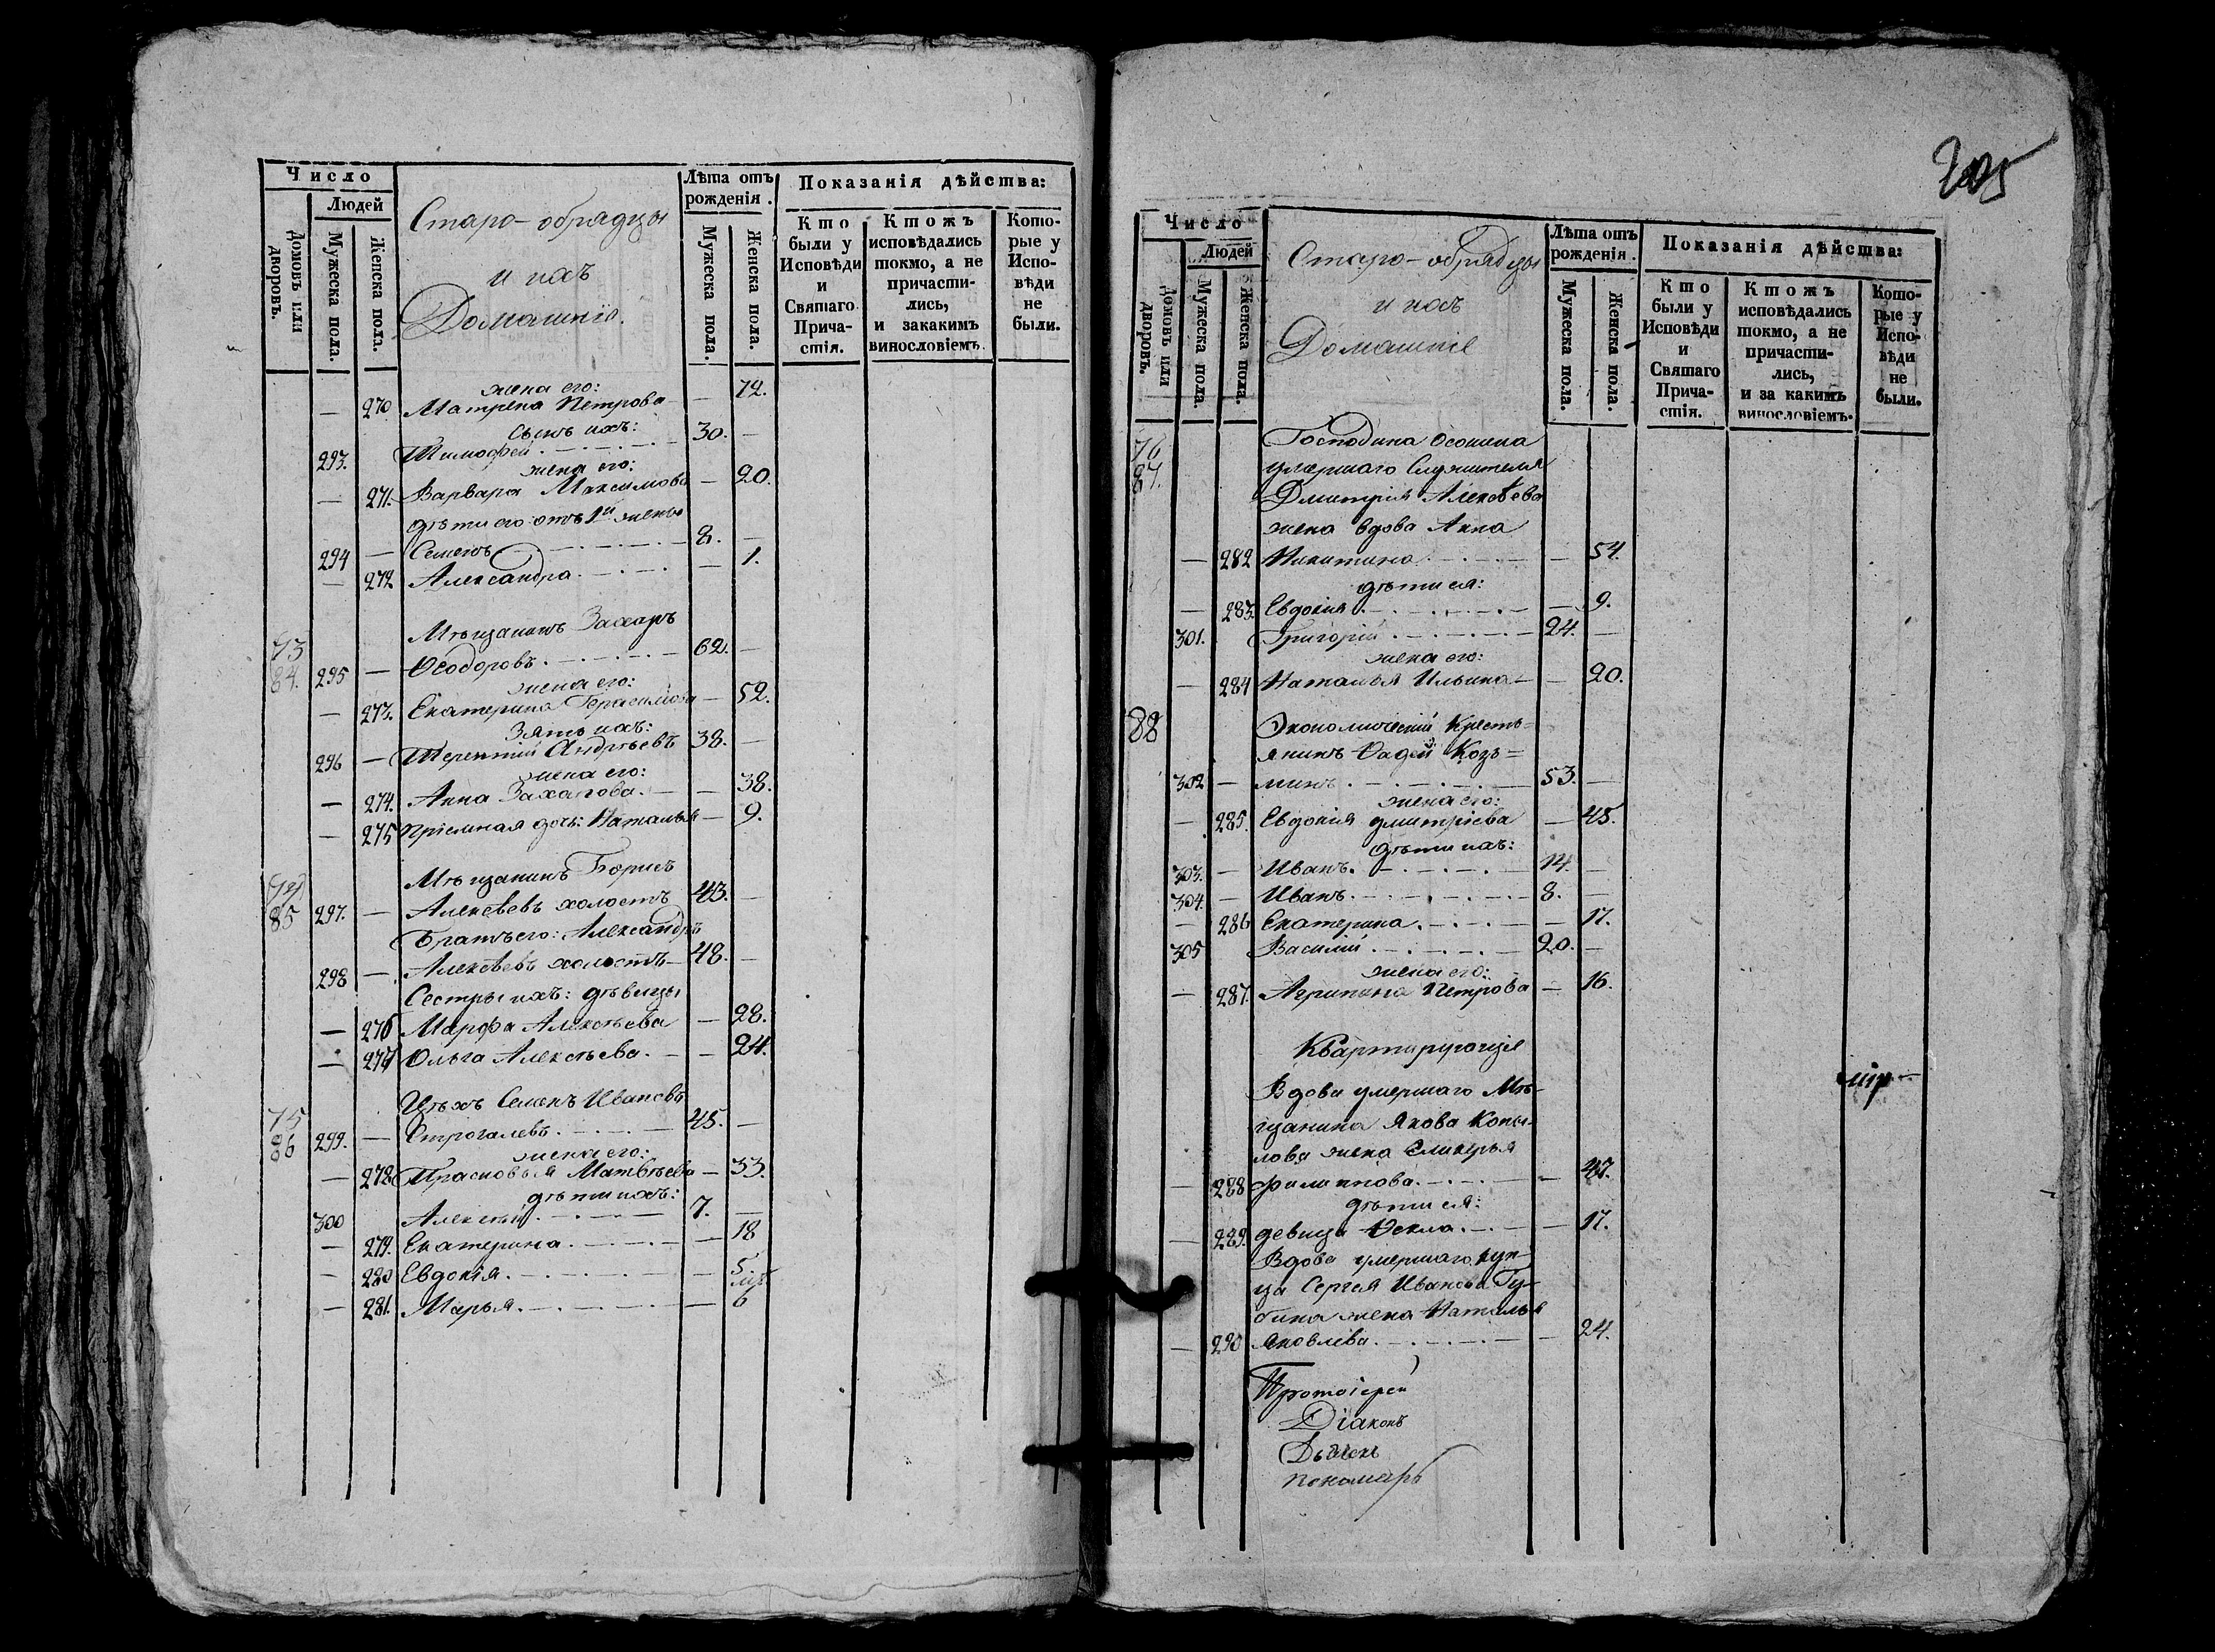 Число
Людей
Домовъ или дворовъ.
Мужеска пола.
Женска пола.
Старо-обрядцы
и ихъ
Домашніе.
Лѣта отъ рожденія.
Мужеска пола.
Женска пола.
Показанія дѣйства:
Кто были у Исповѣди и Святаго Причастія.
Ктожъ исповѣдались токмо, а не причастились, и закакимъ винословіемъ.
Которые у Исповѣди не были.
жена его:
— 270 Матрена Петрова — — 72.
сынъ ихъ:
293. Тимофей 30. —
жена его:
— 271. Варвара Максимова — 20.
дѣти его отъ 1й жены
294 — Семенъ 8. —
— 272 Александра — 1.
Мѣщанинъ Захаръ
73
84. 295 — Ѳеодоровъ 62. —
жена его:
— 273. Екатерина Герасимова — 52.
Зять ихъ:
296 — Терентій Андреевъ 38. —
жена его:
— 274. Анна Захарова — 38.
— 275 Пріемная дочь: Наталья — 9.
Мѣщанинъ Борисъ
74
85 297. — Алексѣевъ холостъ 43. —
Братъ его: Александръ
298 — Алексѣевъ холостъ — 48. —
Сестры ихъ: дѣвицы
— 276 Марфа Алексѣева — 28.
— 277 Ольга Алексѣева — 24.
Цѣхъ Семенъ Ивановъ
75
86 299. — Строгалевъ 45. —
жена его:
— 278 Прасковья Матвѣева — 33.
дѣти ихъ:
300 Алексѣй 7. —
— 279. Екатерина — 18
— 280 Евдокія — 5.
— 281. Марья — 6
205
Число
Людей
Домовъ или дворовъ.
Мужеска пола.
Женска пола.
Старо-обрядцы
и ихъ
Домашніе
Лѣта отъ рожденія.
Мужеска пола.
Женска пола.
Показанія дѣйства:
Кто были у Исповѣди и Святаго Причастія.
Ктожъ исповѣдались токмо, а не причастились, и за какимъ винословіемъ.
Которые у Исповѣди не были.
76 Господина Осокина
87. умершаго Служителя
Дмитрія Алексѣева
жена вдова Анна
— 282 Никитина — 54.
дѣти ея:
— 283 Евдокія — 9.
301. Григорій 24. —
жена его:
— 284 Наталья Ильина — — 20.
88 Экономическій Кресть=
янинъ Фадей Козь=
302 — минъ 53. —
жена его:
— 285. Евдокія Дмитріева — 45.
дѣти ихъ:
303. — Иванъ. 14. —
304. — Иванъ. 8. —
— 286 Екатерина. — 17.
305 Василій 20. —
жена его:
— 287. Агрипина Петрова — 16.
Квартирующіе
Вдова умершаго Мѣ-
щанина Якова Копы-
лова жена Гликерья
— 288 Филипова. — 47.
дѣти ея:
— 289. девица Фекла. — 17.
Вдова умершаго куп-
ца Сергея Иванова Гу-
бина жена Наталья
— 290 Яковлева. — 24.
Протоіерей
Діаконъ
Дьячекъ
Пономарь